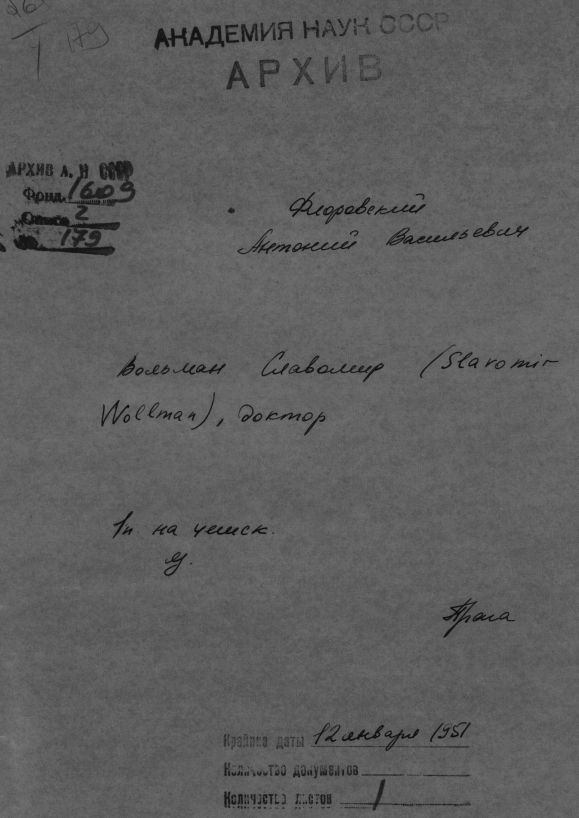 179
АКАДЕМИЯ НАУК СССР
АРХИВ
АРХИВ А. Н СССР
Фонд 1609
Опись 2
№ 179
Флоровский
Антоний Васильевич
Вольман Славомир (Slavomir
Wollman), доктор
1п на чешск.
я.
Прага
Крайние даты 12 января 1951
Количество документов
Количество листов 1